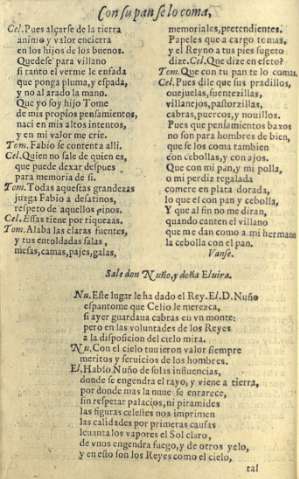 Con su pan se lo coma,
Cel. Pues alçarse de la tierra
animo y valor encierra
en los hijos de los buenos.
Quedese para villano
si tanto el verme le enfada
que ponga pluma, y espada,
y no al arado la mano.
Que yo soy hijo Tome
de mis propios pensamientos,
naci en mis altos intentos,
y en mi valor me crie.
Tom. Fabio se contenta alli.
Cel. Quien no sale de quien es,
que puede dexar despues
para memoria de si.
Tom. Todas aquestas grandezas
juzga Fabio a desatinos,
respeto de aquellos pinos.
Cel. Essas tiene por riquezas.
Tom. Alaba las claras fuentes,
y tus entoldadas salas,
mesas, camas, pajes, galas,
memoriales, pretendientes.
Papeles que a cargo tomas,
y el Reyno a tus pies sugeto
dize. Cel. Que dize en efeto?
Tom. Que con tu pan te lo comas.
Cel. Pues dile que sus pradillos,
ouejuelas, fuentezillas,
villanejos, pastorzillas,
cabras, puercos, y nouillos.
Pues que pensamientos baxos
no son para hombres de bien,
que se los coma tambien
con cebollas, y con ajos.
Que yo con mi pan, y mi polla,
o mi perdiz regalada
comere en plata dorada,
lo que el con pan y cebolla,
Y que al fin no me diran,
quando canten el villano
que me dan como a mi hermano
la cebolla con el pan.
Vanse.
Sale don Nuño, y doña Eluira.
Nu. Este lugar le ha dado el Rey. El. D. Nuño
espantome que Celio le merezca,
si ayer guardaua cabras en vn monte:
pero en las voluntades de los Reyes
a la disposicion del cielo mira.
Nu. Con el cielo tuuieron valor siempre
meritos y seruicios de los hombres.
El. Hablo Nuño de solas influencias,
donde se engendra el rayo, y viene a tierra,
por donde mas la nuue se enrarece,
sin respetar palacios, ni piramides
las figuras celestes nos imprimen
las calidades por primeras causas
leuanta los vapores el Sol claro,
de vnos engendra fuego, y de otros yelo,
y en esto son los Reyes como el cielo,
tal